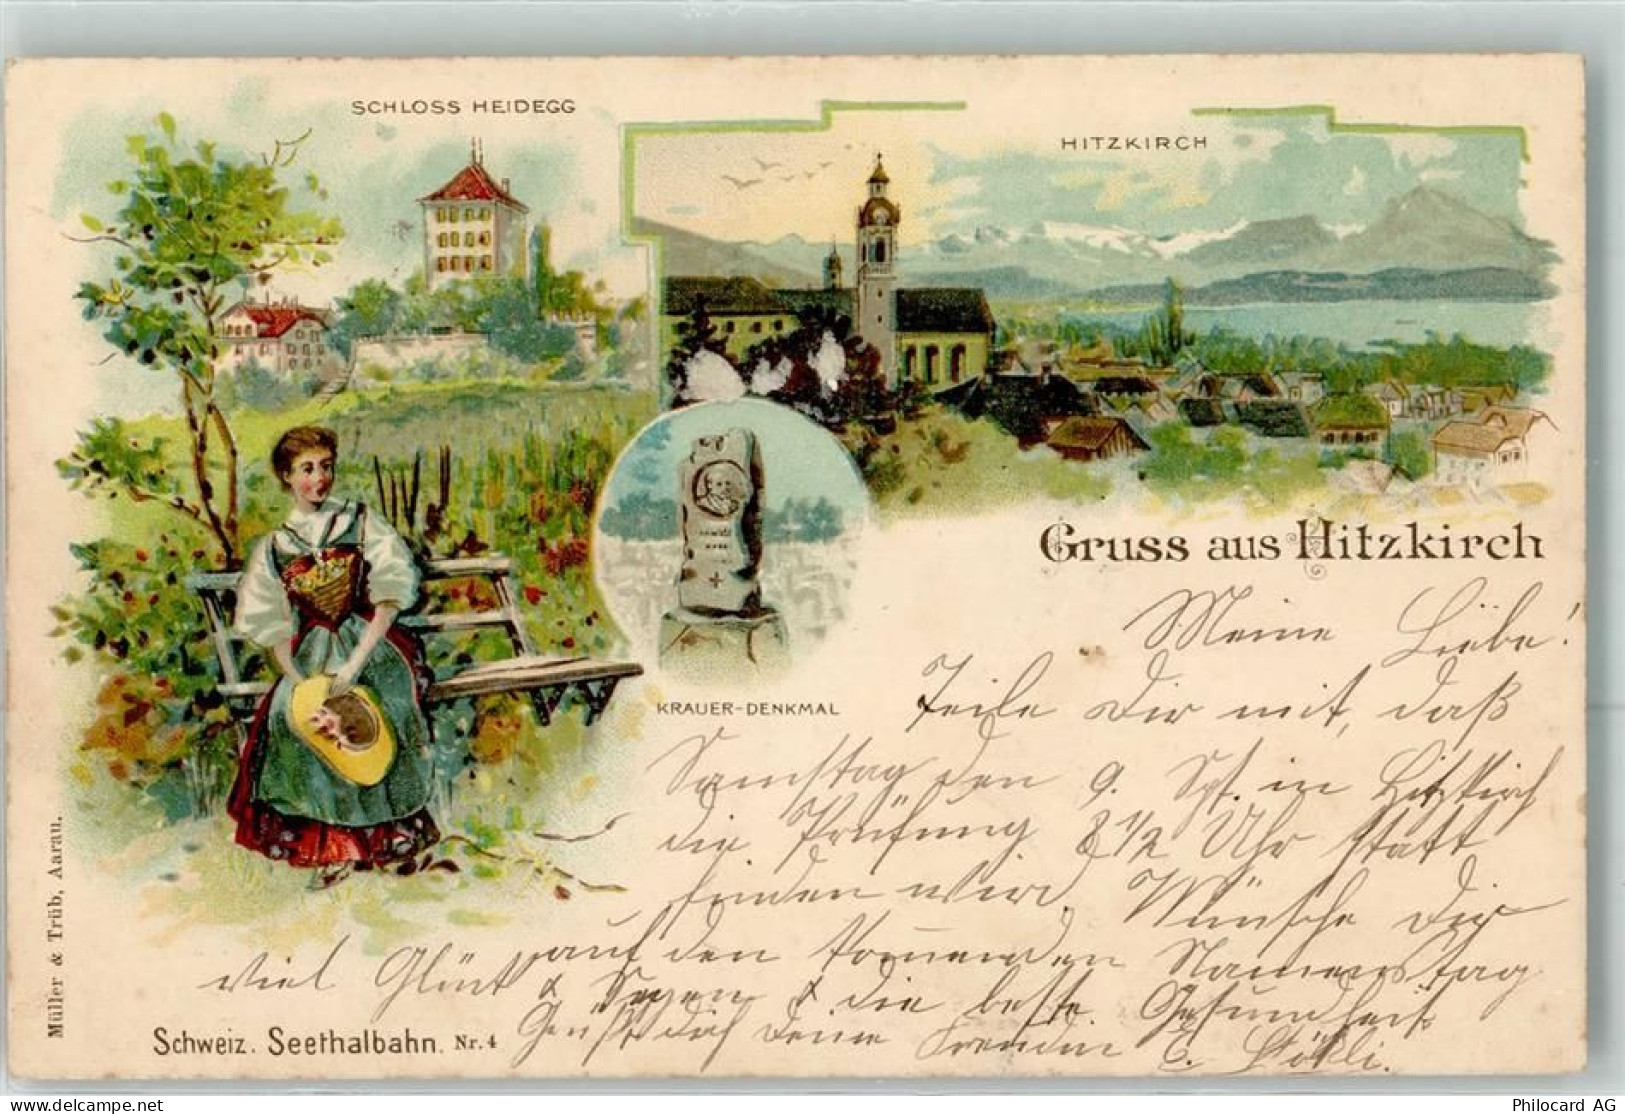 SCHLOSS HEIDEGG
HITZKIRCH
KRAUER-DENKMAL
Gruss aus Hitzkirch
Meine Liebe!
Teile Dir mit, daß
Samstag den 9. Spt. in Hitzkirch
die Prüfung 8 1/2 Uhr statt
finden wird. Wünsche Dir
viel Glück auf den kommenden Namenstag
& Segen & die beste Gesundheit
Grüßt dich Deine Freundin C. Stökli.
Schweiz. Seethalbahn. Nr. 4
Müller & Trüb, Aarau.
delcampe.net
Philocard AG